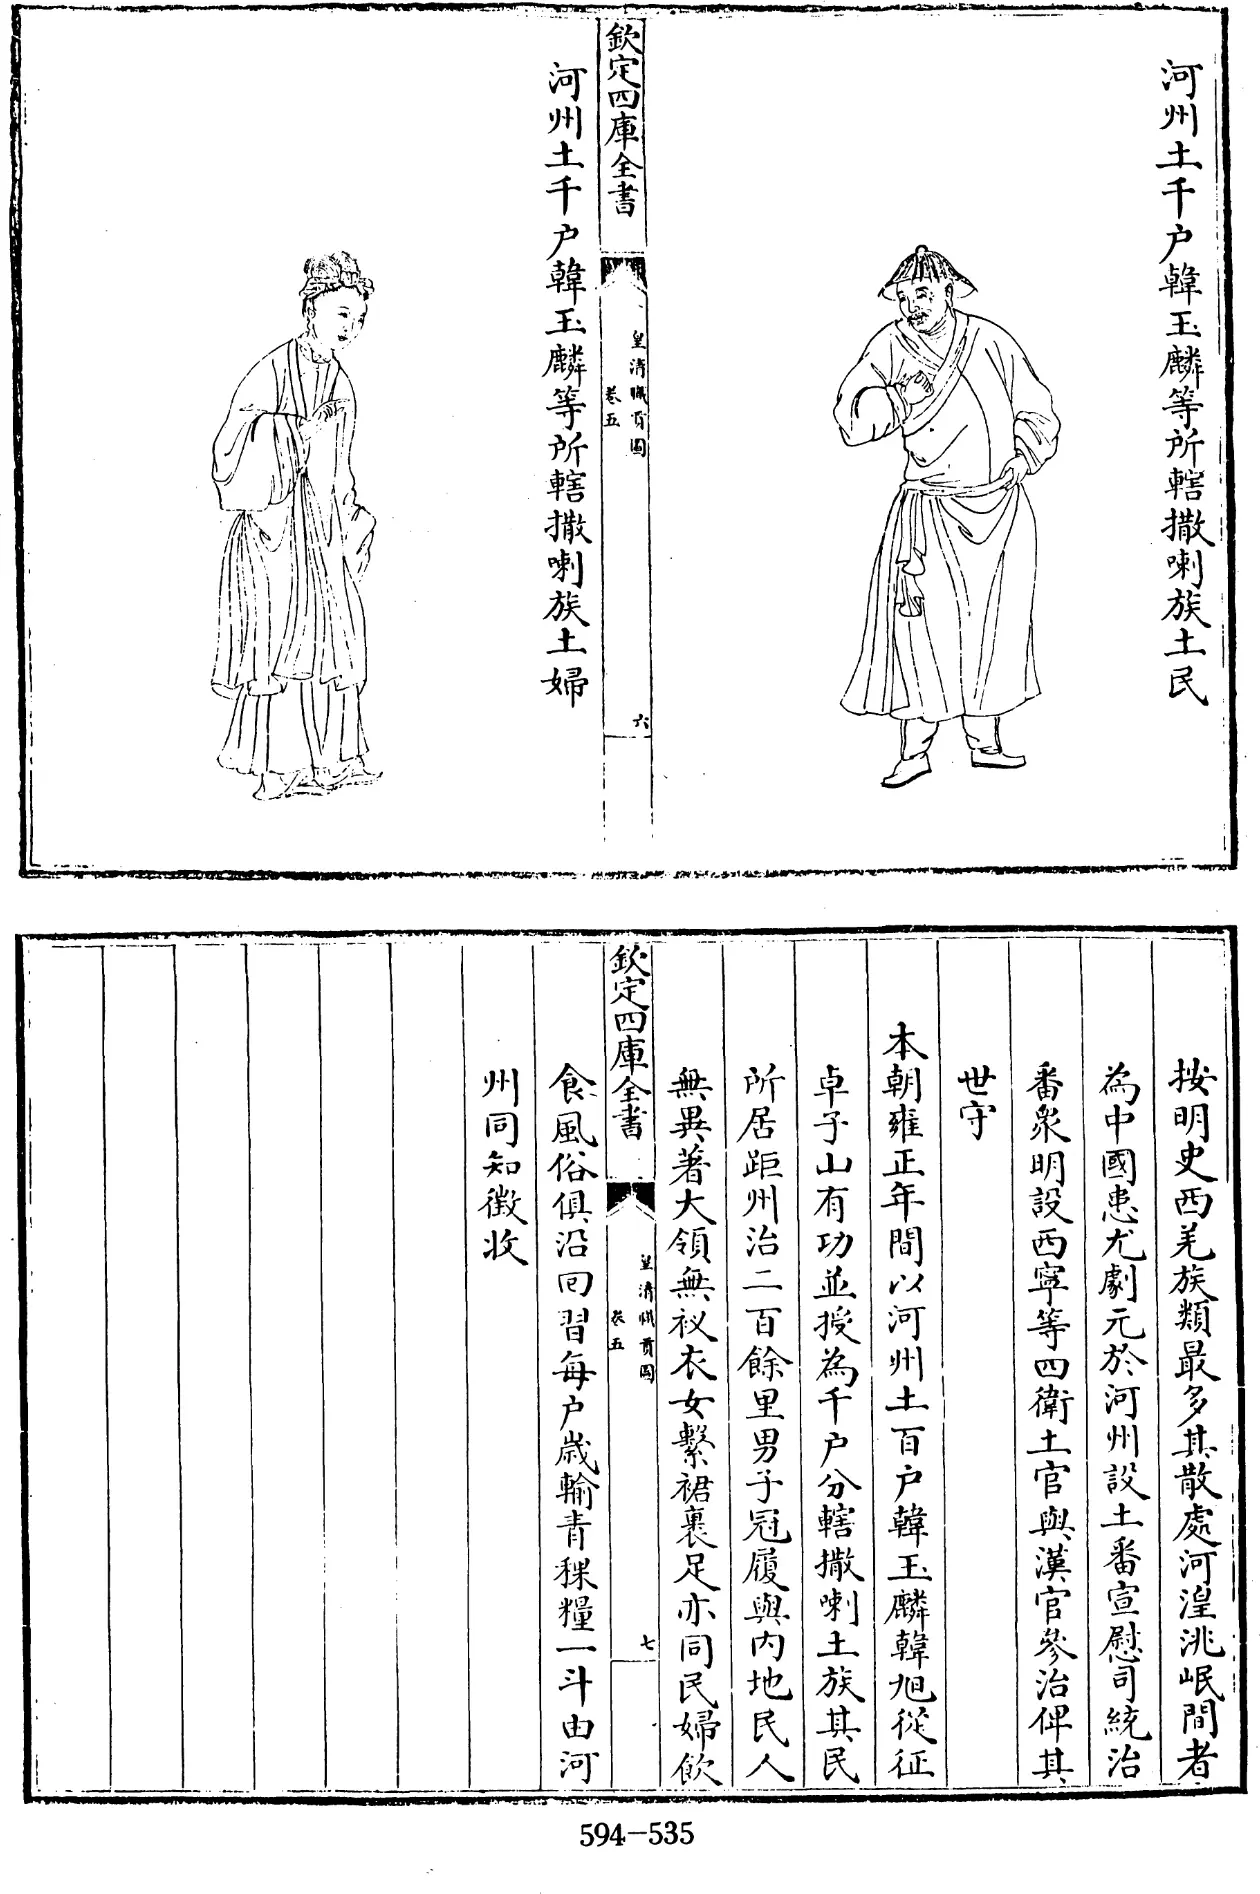 河州土千户韓玉麟等所轄撒喇族土民
欽定四庫全書
皇清職貢圖
卷五
六
河州土千户韓玉麟等所轄撒喇族土婦
按明史西羌族類最多其散處河湟洮岷間者
為中國患尤劇元於河州設土番宣慰司統治
番衆明設西寧等四衛土官與漢官參治俾其
世守
本朝雍正年間以河州土百户韓玉麟韓旭從征
卓子山有功並授為千户分轄撒喇土族其民
所居距州治二百餘里男子冠履與内地民人
無異著大領無衩衣女繫裙裹足亦同民婦飲
欽定四庫全書
皇清職貢圖
卷五
七
食風俗俱沿囘習每户歲輸青稞糧一斗由河
州同知徵收
594-535